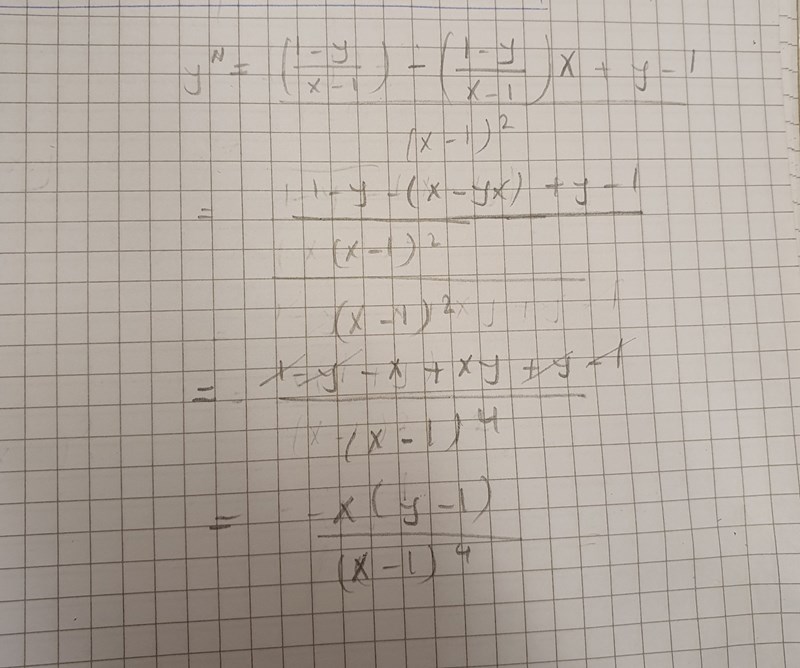 y'' = (1-y / x-1) - (1-y / x-1) x + y - 1
(x-1)²
= 1-y - (x-yx) + y-1
(x-1)²
(x-1)²
= 1-y - x + xy + y - 1
(x-1)⁴
= -x(y-1)
(x-1)⁴